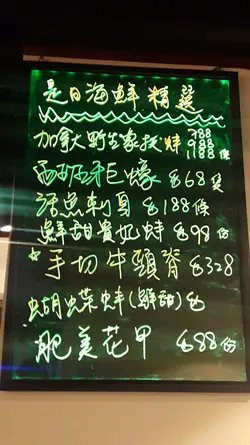 是日海鮮精選
加拿大野生象拔蚌 788 988 1188 條
西班牙巨蠔 $68隻
活魚刺身 $188條
鮮甜貴妃蚌 $98份
*手切牛頸脊 $328
蝴蝶蚌(鮮甜) $
肥美花甲 $88份